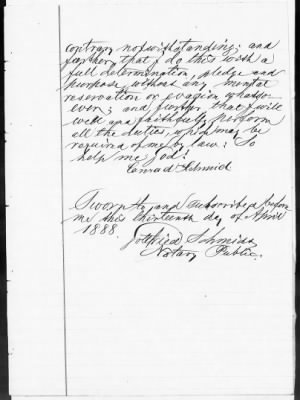 contrary notwithstanding; and
further, that I do this with a
full determination, pledge and
purpose, without any mental
reservation or evasion whatso-
ever; and further that I will
well and faithfully perform
all the duties, which may be
required of me by law: So
help me God!
Conrad Schmid
Sworn to and subscribed before
me this thirteenth day of April
1888.
Gottfried Schmidt
Notary Public.